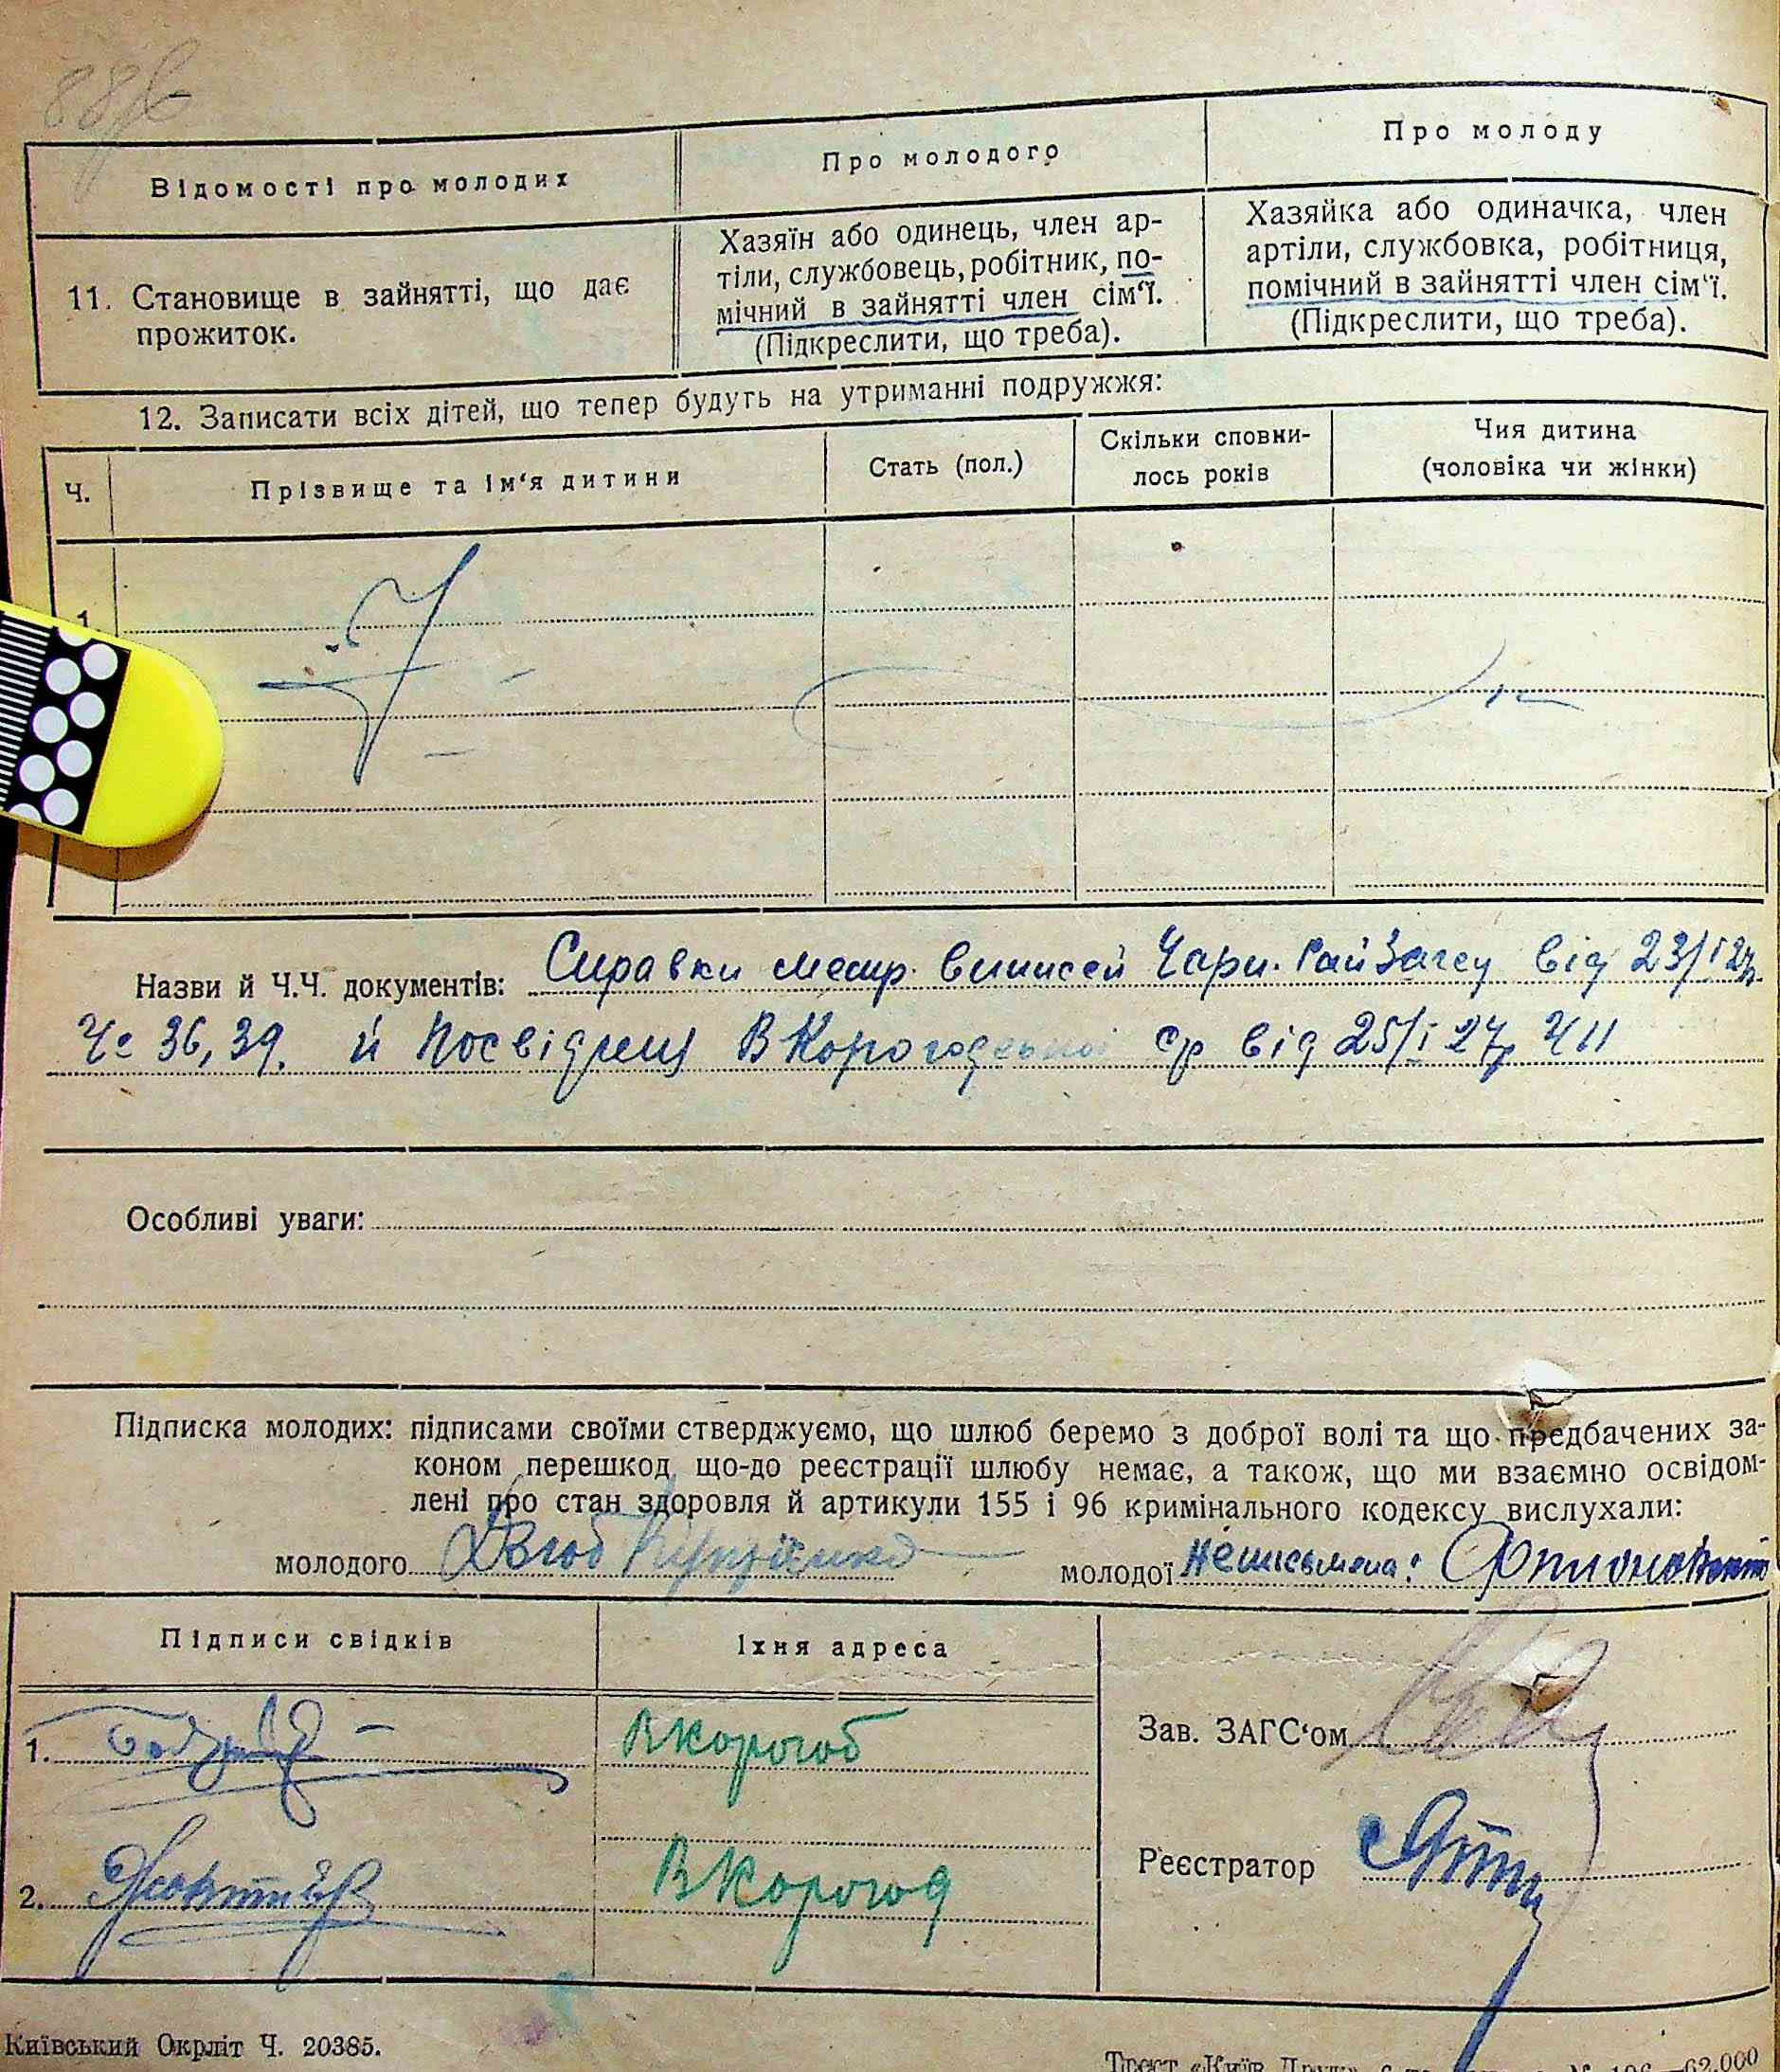 Відомості про молодих
Про молодого
Про молоду
11. Становище в зайнятті, що дає
прожиток.
Хазяїн або одинець, член ар-
тіли, службовець, робітник, по-
мічний в зайнятті член сім‘ї.
(Підкреслити, що треба).
Хазяйка або одиначка, член
артіли, службовка, робітниця,
помічний в зайнятті член сім‘ї.
(Підкреслити, що треба).
12. Записати всіх дітей, що тепер будуть на утриманні подружжя:
Ч.
Прізвище та ім‘я дитини
Стать (пол.)
Скільки сповни-
лось років
Чия дитина
(чоловіка чи жінки)
1
Назви й Ч.Ч. документів: Справки метр. виписей Чорн. РайЗагсу від 23/I 27р.
Чс 36, 39. й Посвідку ВКорогодської ср від 25/I 27р Ч 11
Особливі уваги:
Підписка молодих: підписами своїми стверджуємо, що шлюб беремо з доброї волі та що предбачених за-
коном перешкод що-до реєстрації шлюбу немає, а також, що ми взаємно освідом-
лені про стан здоровля й артикули 155 і 96 кримінального кодексу вислухали:
молодого
молодої Неписьмена:
Підписи свідків
Їхня адреса
1.
ВКорогод
2.
ВКорогод
Зав. ЗАГС‘ом
Реєстратор
Київський Окрліт Ч. 20385.
62.000